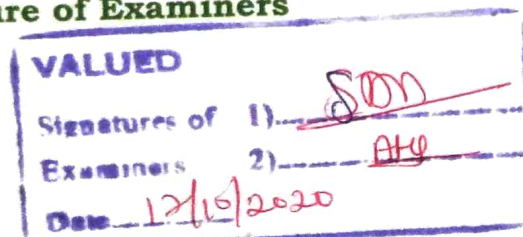 re of Examiners
VALUED
Signatures of 1)
Examiners 2)
Date 17/10/2020